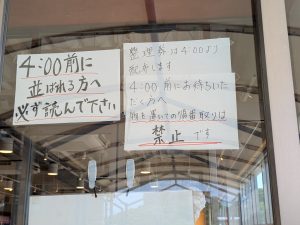 4:00前に
並ばれる方へ
必ず読んで下さい
整理券は4:00より
配布します
4:00前にお待ちいた
だく方へ
物を置いての順番取りは
禁止です